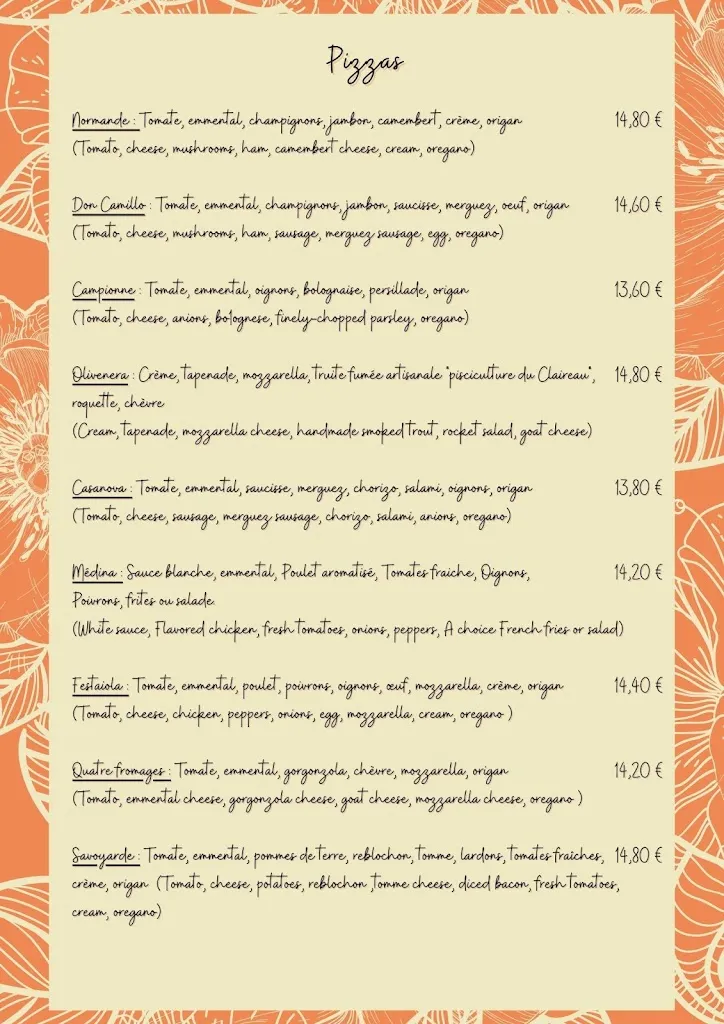 Pizzas
Normande : Tomate, emmental, champignons, jambon, camembert, crème, origan 14,80 €
(Tomato, cheese, mushrooms, ham, camembert cheese, cream, oregano)
Don Camillo : Tomate, emmental, champignons, jambon, saucisse, merguez, oeuf, origan 14,60 €
(Tomato, cheese, mushrooms, ham, sausage, merguez sausage, egg, oregano)
Campionne : Tomate, emmental, oignons, bolognaise, persillade, origan 13,60 €
(Tomato, cheese, anions, bolognese, finely-chopped parsley, oregano)
Olivenera : Crème, tapenade, mozzarella, truite fumée artisanale "pisciculture du Claireau", 14,80 €
roquette, chèvre
(Cream, tapenade, mozzarella cheese, handmade smoked trout, rocket salad, goat cheese)
Casanova : Tomate, emmental, saucisse, merguez, chorizo, salami, oignons, origan 13,80 €
(Tomato, cheese, sausage, merguez sausage, chorizo, salami, anions, oregano)
Médina : Sauce blanche, emmental, Poulet aromatisé, Tomates fraiche, Oignons, 14,20 €
Poivrons, frites ou salade.
(White sauce, Flavored chicken, fresh tomatoes, onions, peppers, A choice French fries or salad)
Festaiola : Tomate, emmental, poulet, poivrons, oignons, œuf, mozzarella, crème, origan 14,40 €
(Tomato, cheese, chicken, peppers, onions, egg, mozzarella, cream, oregano )
Quatre fromages : Tomate, emmental, gorgonzola, chèvre, mozzarella, origan 14,20 €
(Tomato, emmental cheese, gorgonzola cheese, goat cheese, mozzarella cheese, oregano )
Savoyarde : Tomate, emmental, pommes de terre, reblochon, tomme, lardons, tomates fraîches, 14,80 €
crème, origan (Tomato, cheese, potatoes, reblochon ,tomme cheese, diced bacon, fresh tomatoes,
cream, oregano)